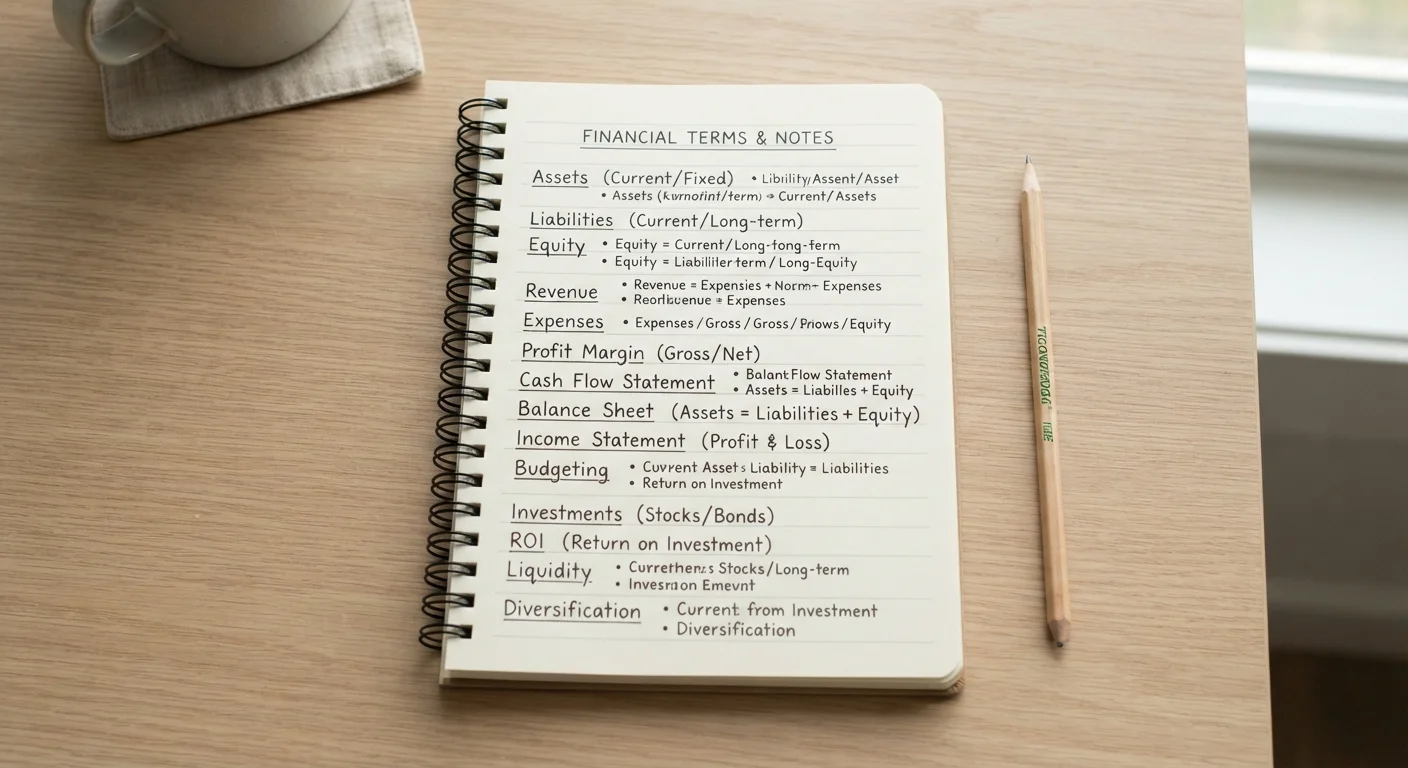 FINANCIAL TERMS & NOTES
Assets (Current/Fixed) • Libility/Assent/Asset
• Assets ( /term) → Current/Assets
Liabilities (Current/Long-term)
Equity • Equity = Current/Long-fong-ferm
• Equity = Liabilliter term / Long-Equity
Revenue • Revenue = Expensies + Norm+ Expenses
• = Expenses
Expenses • Expenses / Gross / Gross / Prows / Equity
Profit Margin (Gross/Net)
Cash Flow Statement • Balant Flow Statement
• Assets = Liabilles + Equity
Balance Sheet (Assets = Liabilities + Equity)
Income Statement (Profit & Loss)
Budgeting • Current Assets Liability = Liabilities
• Return on Investment
Investments (Stocks/Bonds)
ROI (Return on Investment)
Liquidity • Stocks/Long-term
•
Diversification • Current from Investment
• Diversification